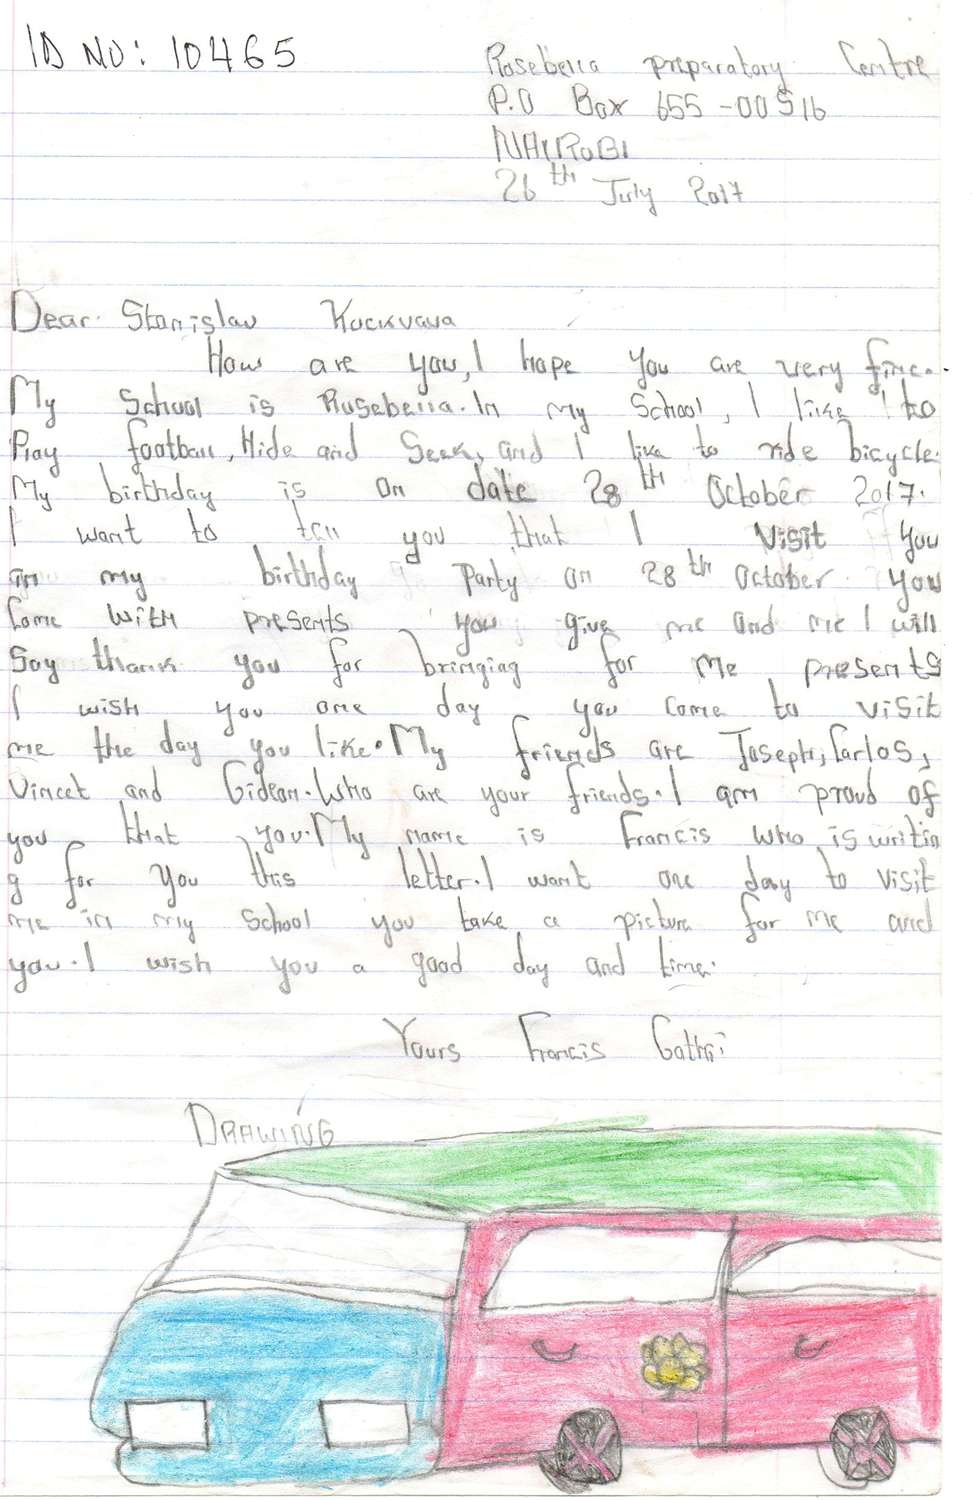 ID NO: 10465
Rosebella preparatory Centre
P.O Box 655 -00516
NAIROBI
26th July 2017
Dear Stanislav
How are you, I hope you are very fine.
My School is Rosebella. In my School, I like to
Play football, Hide and Seek, and I like to ride bicycle.
My birthday is on date 28th October 2017.
I want to tell you that I visit you
in my birthday party on 28th October you
Come with presents you give me and me I will
Say thank you for bringing for me presents
I wish you one day you come to visit
me the day you like. My friends are Joseph, Carlos,
Vincet and Gideon. Who are your friends. I am proud of
you that you. My name is Francis who is writin
g for you this letter. I want one day to visit
me in my school you take a picture for me and
you. I wish you a good day and time.
Yours Francis
DRAWING